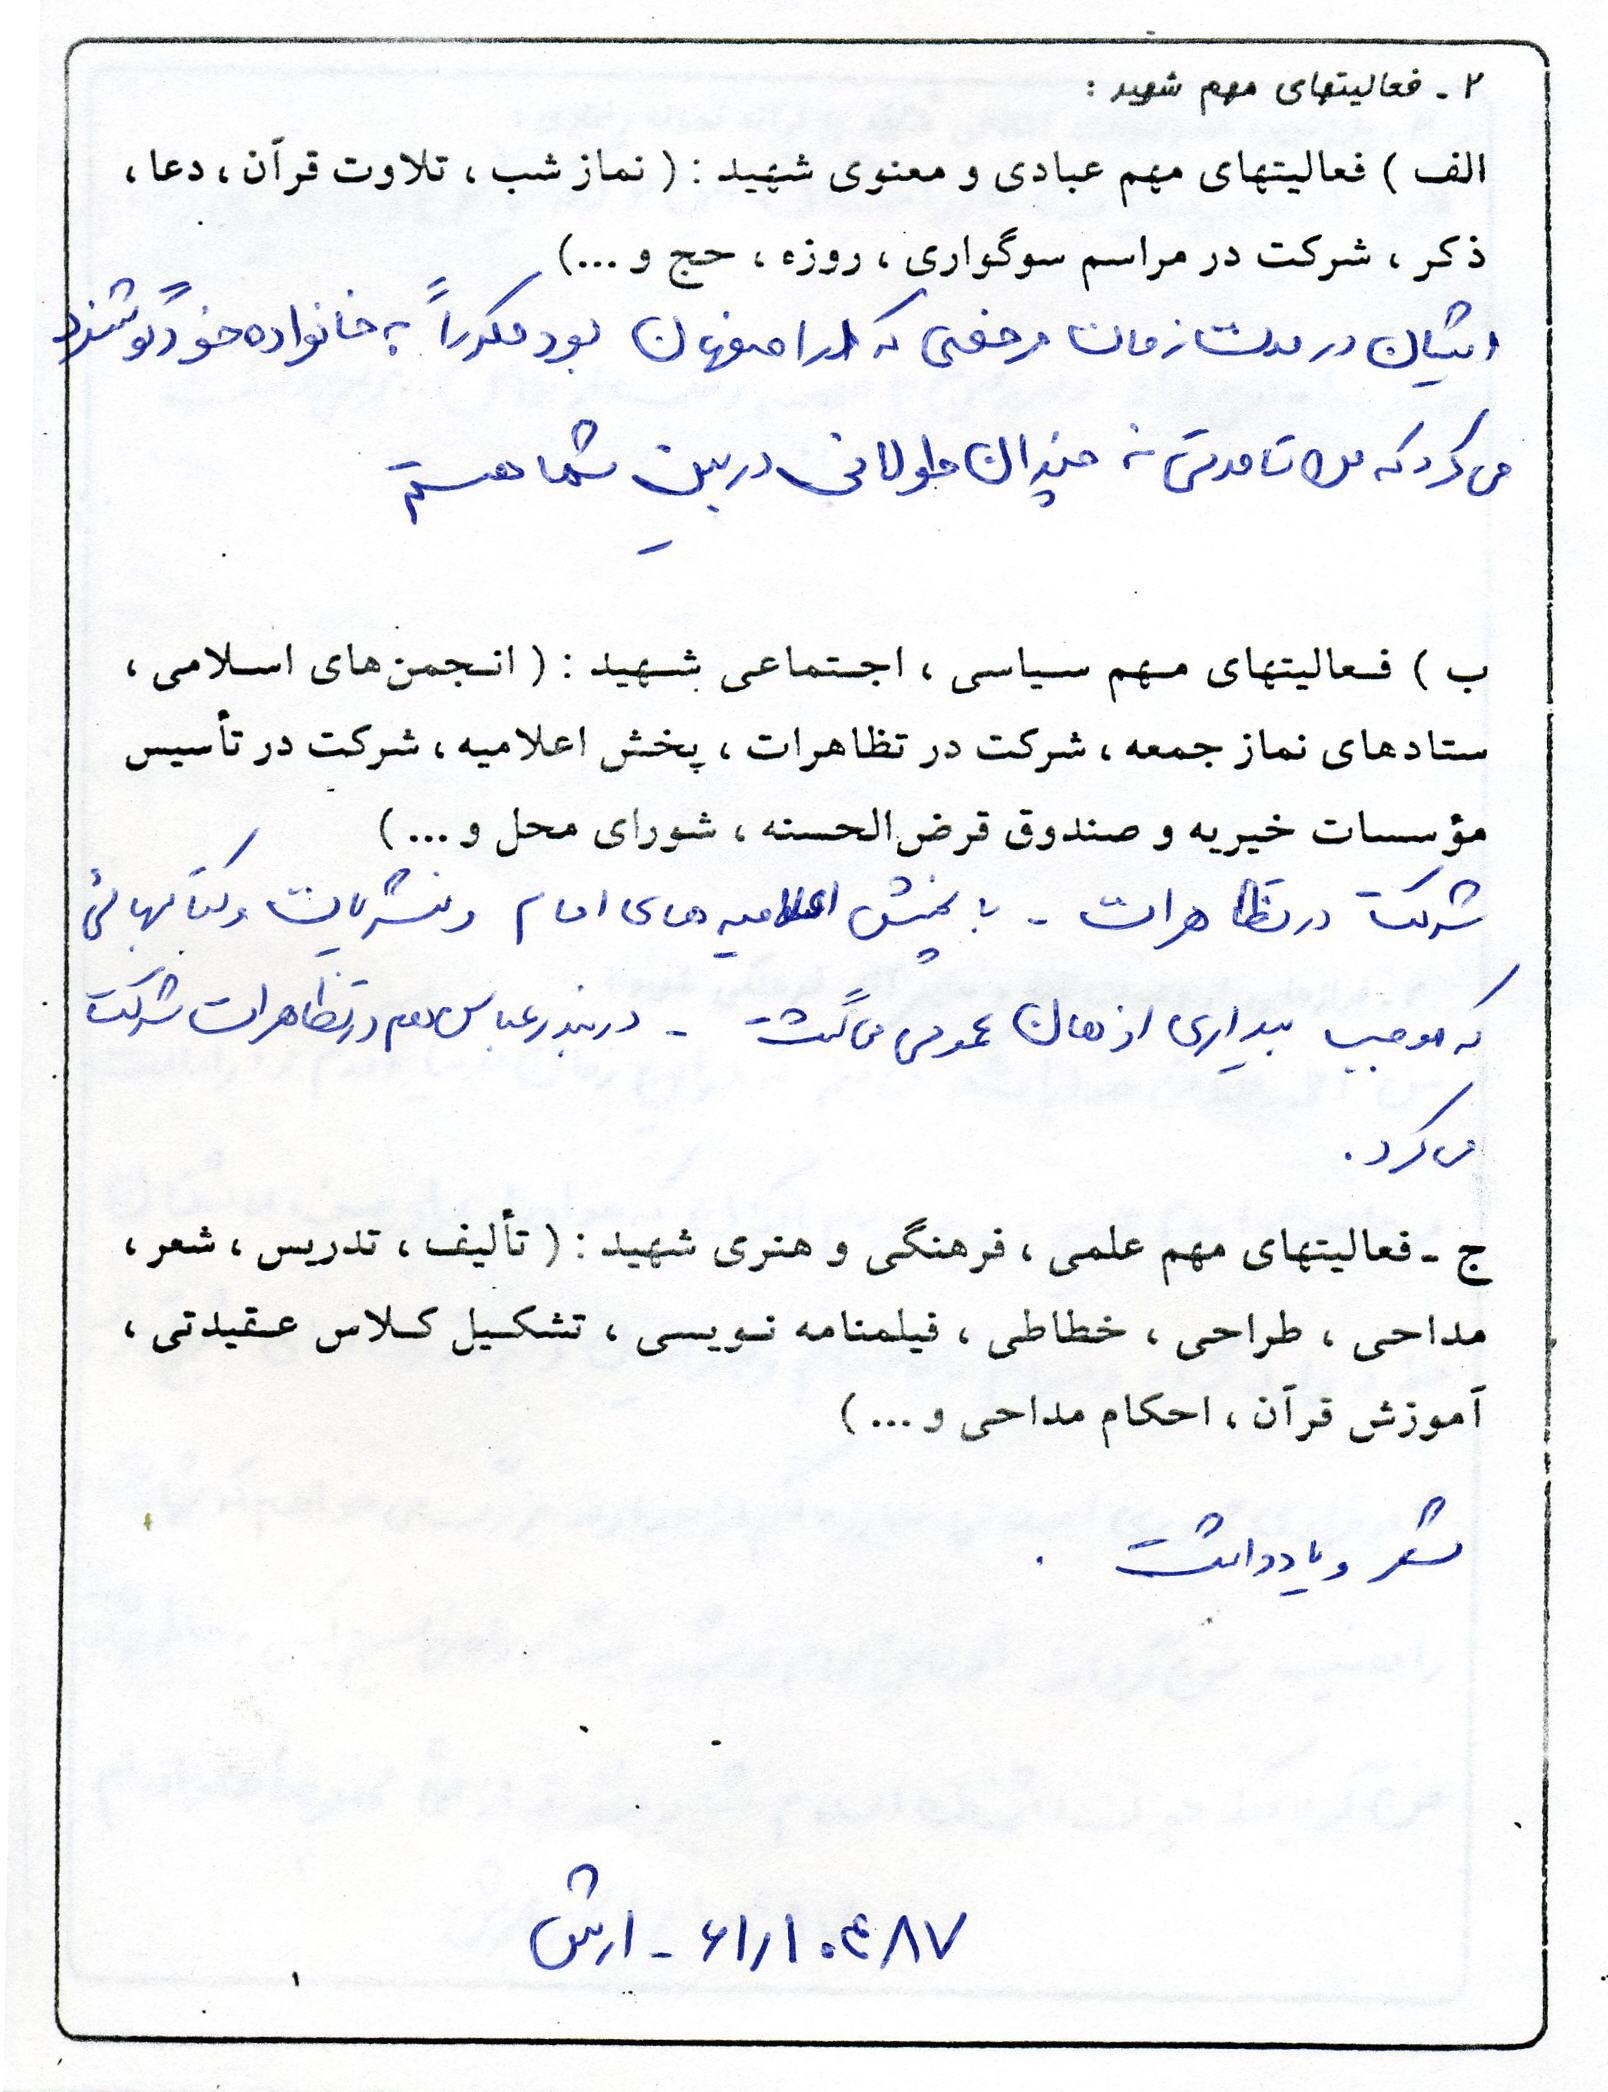 ۲ ـ فعالیتهای مهم شهید :
الف ) فعالیتهای مهم عبادی و معنوی شهید : ( نماز شب ، تلاوت قرآن ، دعا ،
ذکر ، شرکت در مراسم سوگواری ، روزه ، حج و ...)
ایشان در مدت زمان مرخصی که در اصفهان بود مکرراً به خانواده خود گوشزد
می کرد که من تا مدتی نه چندان طولانی در بین شما هستم
ب ) فعالیتهای مهم سیاسی ، اجتماعی شهید : ( انجمن‌های اسلامی ،
ستادهای نماز جمعه ، شرکت در تظاهرات ، پخش اعلامیه ، شرکت در تأسیس
مؤسسات خیریه و صندوق قرض‌الحسنه ، شورای محل و ... )
شرکت در تظاهرات - با پخش اعلامیه های امام و نشریات و کتابهائی
که موجب بیداری اذهان عمومی می گشت - در بندرعباس هم در تظاهرات شرکت
می کرد .
ج ـ فعالیتهای مهم علمی ، فرهنگی و هنری شهید : ( تألیف ، تدریس ، شعر ،
مداحی ، طراحی ، خطاطی ، فیلمنامه نویسی ، تشکیل کلاس عقیدتی ،
آموزش قرآن ، احکام مداحی و ... )
شعر و یادداشت .
ارتش